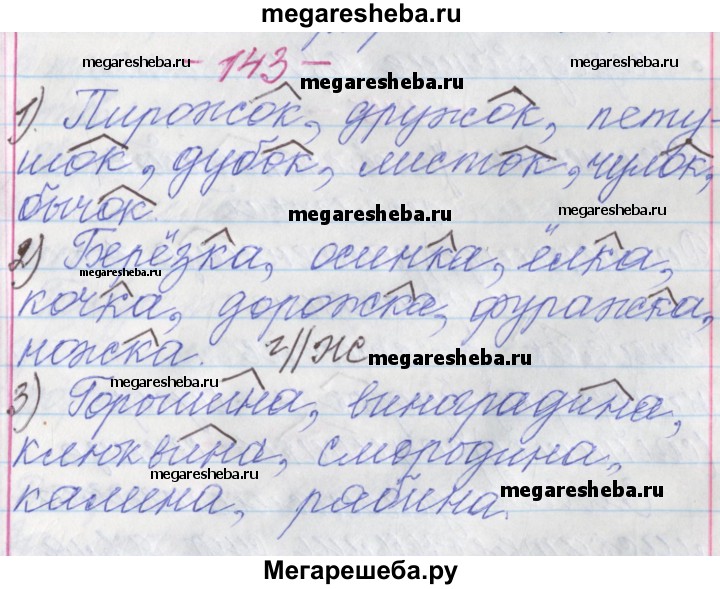 megaresheba.ru
megaresheba.ru - 143 - megaresheba.ru
megaresheba.ru
1) Пирожок, дружок, пету-
шок, дубок, листок, чулок,
бычок.
megaresheba.ru megaresheba.ru
2) Берёзка, осинка, ёлка,
megaresheba.ru
кочка, дорожка, фуражка,
ножка. г//ж megaresheba.ru
megaresheba.ru
3) Горошина, виноградина,
клюквина, смородина,
megaresheba.ru megaresheba.ru
калина, рябина.
Мегарешеба.ру